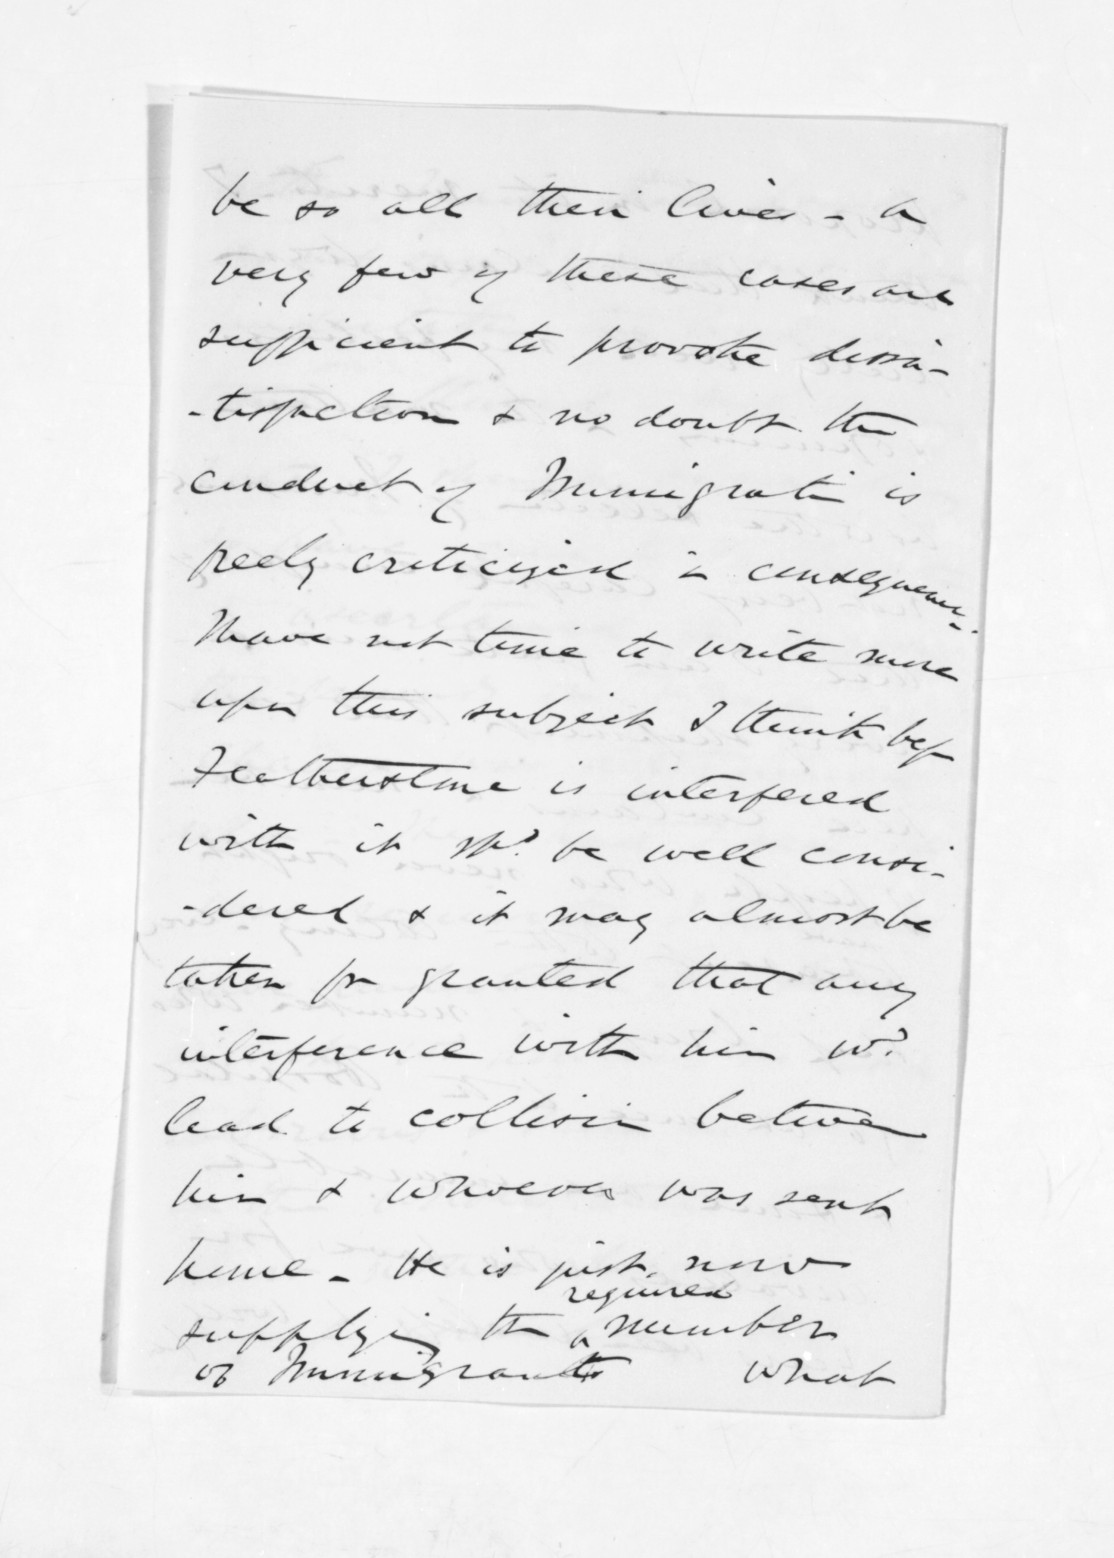 be so all their lives - A
very few of these cases are
sufficient to provoke dissa-
-tisfaction & no doubt the
conduct of Immigrati is
freely criticized in consequence.
I have not time to write more
upon this subject I think bef
Featherstone is interfered
with it shd. be well consi-
-dered & it may almost be
taken for granted that any
interference with him wd.
lead to collision between
him & whoever was sent
home - He is just now
supplying the required number
of Immigrants what